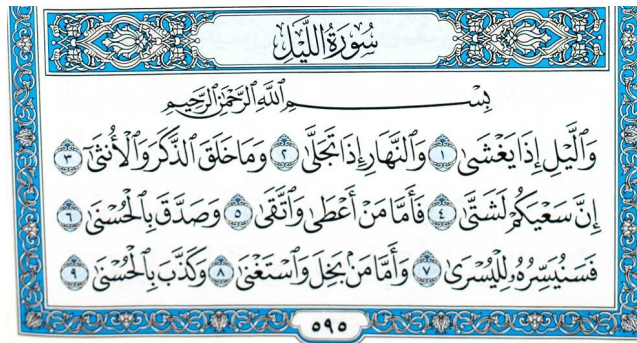 سُورَةُ اللَّيْلِ
بِسْمِ ٱللَّهِ ٱلرَّحْمَٰنِ ٱلرَّحِيمِ
وَٱلَّيْلِ إِذَا يَغْشَىٰ ١ وَٱلنَّهَارِ إِذَا تَجَلَّىٰ ٢ وَمَا خَلَقَ ٱلذَّكَرَ وَٱلْأُنثَىٰٓ ٣
إِنَّ سَعْيَكُمْ لَشَتَّىٰ ٤ فَأَمَّا مَنْ أَعْطَىٰ وَٱتَّقَىٰ ٥ وَصَدَّقَ بِٱلْحُسْنَىٰ ٦
فَسَنُيَسِّرُهُۥ لِلْيُسْرَىٰ ٧ وَأَمَّا مَنۢ بَخِلَ وَٱسْتَغْنَىٰ ٨ وَكَذَّبَ بِٱلْحُسْنَىٰ ٩
٥٩٥